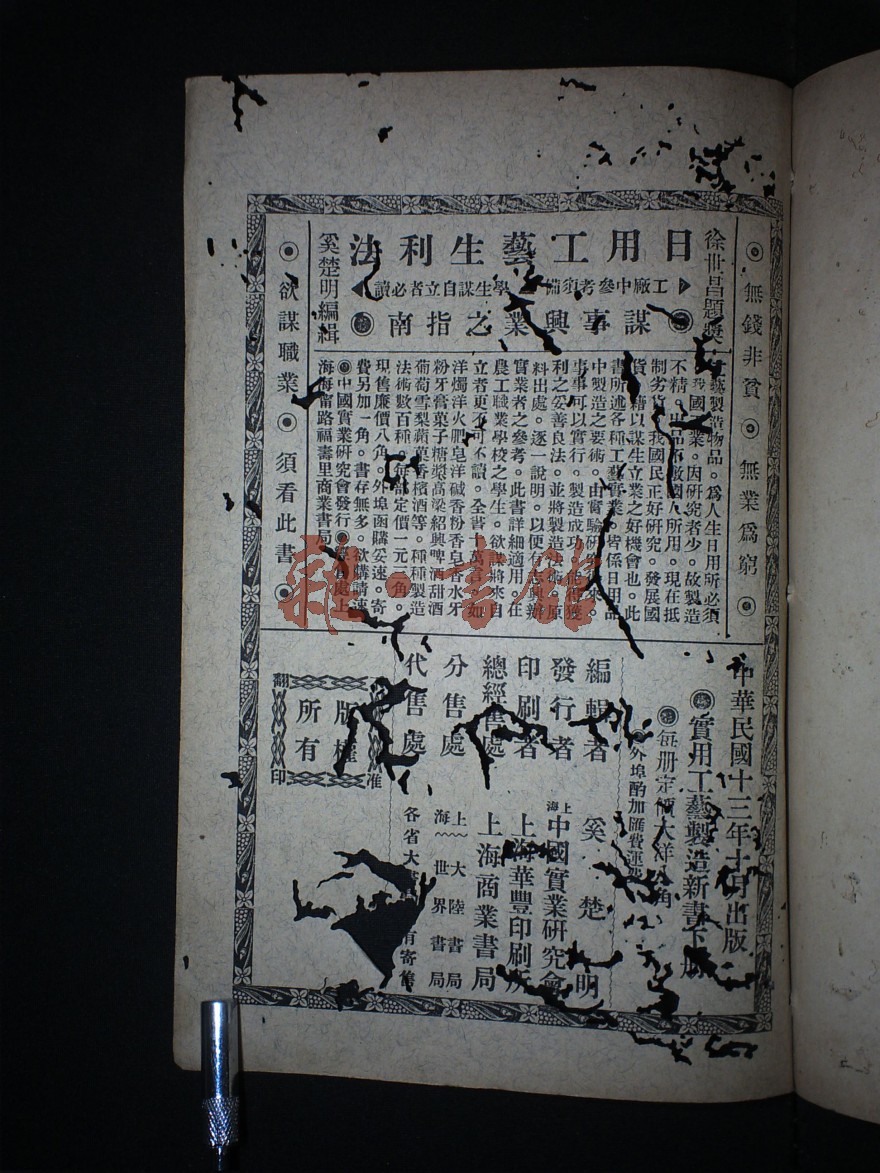 ◉無錢非貧◉無業爲窮◉
徐世昌題獎
日用工藝生利法
工廠中參考須備 學生謀自立者必讀
謀事興業之指南
奚楚明編緝
藝製造物品。爲人生日用所必須
我國 業。因研究者少。故製造
不精。出品不敵國人所用。現在抵
制劣貨。我國民正好研究。發展國
貨。藉以謀生立業之好機會也。此
書所述各種工藝實業。皆係日用品
中製造之要術。由實驗研 來。
事事可以實行。製造成功。能得獲
利之妥善良法。並將製造法術。原
料出處。逐一說明。以便有志興辦
實業者之參考。此書詳細適用。在
農工職業學校之學生。欲謀將來自
立者更不可不讀。全書十萬言。如
洋燭洋火肥皂洋碱香粉香皂香水牙
粉牙膏菓子糖漿高粱紹興啤酒甜酒
葡萄雪梨蘋菓香檳酒等。種種製造
法術數百種。每部定價一元二角。
現售廉價八角。外埠函購妥速。寄
費另加一角。書存無多。欲購請速
◉中國實業研究會發行◉ 上
海海甯路福壽里商業書局
◉欲謀職業◉須看此書◉
中華民國十三年十月出版
實用工藝製造新書下册
每册定價大洋 角
外埠酌加匯費運費
編輯者 奚楚明
發行者 上海中國實業研究會
印刷者 上海華豐印刷所
總經售處 上海商業書局
分售處 上海 大陸書局 世界書局
代售處 各省大書 有寄售
版權所有
翻印 准
雜·書館